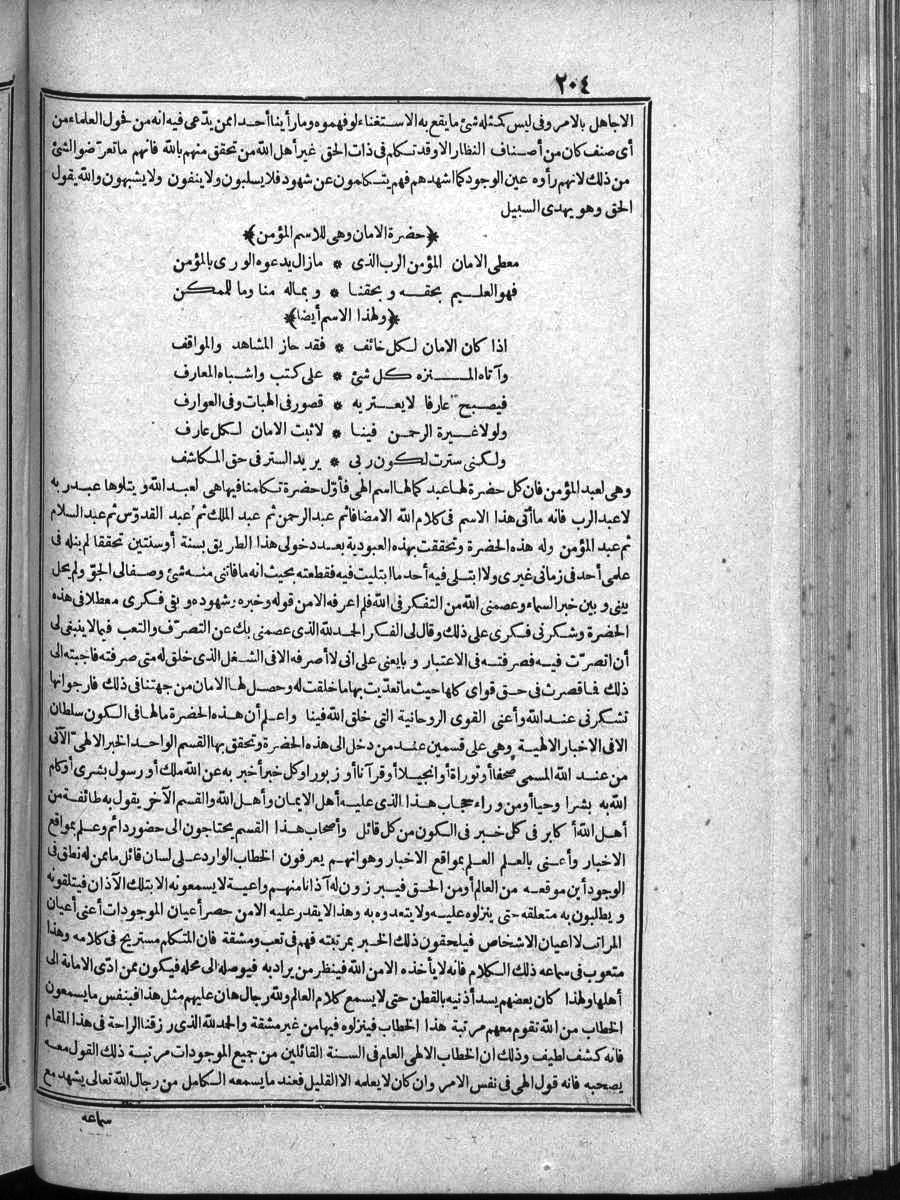 ٢٠٤
الاجاهل بالامر وفى ليس كمثله شئ ما يقع به الاستغناء لو فهموه وما رأينا أحدا ممن يدّعى فيه انه من فحول العلماء من
أى صنف كان من أصناف النظار الا وقد تكلم فى ذات الحق غير أهل الله من تحقق منهم بالله فانهم ما تعرّضوا لشئ
من ذلك لانهم رأوه عين الوجود كما أشهدهم فهم يتكلمون عن شهود فلا يسلبون ولا ينفون ولا يشبهون والله يقول
الحق وهو يهدى السبيل
﴿حضرة الامان وهى للاسم المؤمن﴾
معطى الامان المؤمن الرب الذى * مازال يدعوه الورى بالمؤمن
فهو العليم بحقه وبحقنا * وبماله منا وما للممكن
﴿ولهذا الاسم أيضا﴾
اذا كان الامان لكل خائف * فقد حاز المشاهد والمواقف
وآتاه المنزه كل شئ * على كتب واشباه المعارف
فيصبح عارفا لا يعتريه * قصور فى الهبات وفى العوارف
ولولا غيرة الرحمن فينا * لاثبت الامان لكل عارف
ولكنى سترت لكون ربى * يريد الستر فى حق المكاشف
وهى لعبد المؤمن فان كل حضرة لها عبد كما لها اسم الهى فأوّل حضرة تكلمنا فيها هى لعبد الله ويتلوها عبد ربه
لا عبد الرب فانه ما أتى هذا الاسم فى كلام الله الا مضافا ثم عبد الرحمن ثم عبد الملك ثم عبد القدّوس ثم عبد السلام
ثم عبد المؤمن وله هذه الحضرة وتحققت بهذه العبودية بعد دخولى هذا الطريق بسنة أو سنتين تحققا لم ينله فى
علمى أحد فى زمانى غيرى ولا ابتلى فيه أحد ما ابتليت فيه فقطعته بحيث انه ما فاتنى منه شئ وصفا لى الجوّ ولم يحل
بينى وبين خبر السماء وعصمنى الله من التفكر فى الله فلم اعرفه الا من قوله وخبره وشهوده وبقى فكرى معطلا فى هذه
الحضرة وشكرنى فكرى على ذلك وقال لى الفكر الحمد لله الذى عصمنى بك عن التصرّف والتعب فيما لا ينبغى لى
أن اتصرّف فيه فصرفته فى الاعتبار وبايعنى على انى لا أصرفه الا فى الشغل الذى خلق له متى صرفته فاجبته الى
ذلك فما قصرت فى حق قواى كلها حيث ما تعدّيت بها ما خلقت له وحصل لها الامان من جهتنا فى ذلك فارجو انها
تشكرنى عند الله وأعنى القوى الروحانية التى خلق الله فينا واعلم أن هذه الحضرة مالها فى الكون سلطان
الا فى الاخبار الالهية وهى على قسمين عند من دخل الى هذه الحضرة وتحقق بها القسم الواحد الخبر الالهىّ الآتى
من عند الله المسمى صحفا أو توراة أو انجيلا أو قرآنا أو زبورا وكل خبر أخبر به عن الله ملك أو رسول بشرى أو كلم
الله به بشرا وحيا أو من وراء حجاب هذا الذى عليه أهل الايمان وأهل الله والقسم الآخر يقول به طائفة من
أهل الله أكابر فى كل خبر فى الكون من كل قائل وأصحاب هذا القسم يحتاجون الى حضور دائم وعلم بمواقع
الاخبار وأعنى بالعلم العلم بمواقع الاخبار وهو انهم يعرفون الخطاب الوارد على لسان قائل ما ممن له نطق فى
الوجود أين موقعه من العالم أو من الحق فيبرزون له آذانا منهم واعية لا يسمعونه الا بتلك الآذان فيتلقونه
ويطلبون به متعلقه حتى ينزلوه عليه ولا يتعدوه به وهذا لا يقدر عليه الا من حصر أعيان الموجودات أعنى أعيان
المراتب لا أعيان الاشخاص فيلحقون ذلك الخبر بمرتبته فهم فى تعب ومشقة فان المتكلم مستريح فى كلامه وهذا
متعوب فى سماعه ذلك الكلام فانه لا يأخذه الا من الله فينظر من يراد به فيوصله الى محله فيكون ممن ادّى الامانة الى
أهلها ولهذا كان بعضهم يسد أذنيه بالقطن حتى لا يسمع كلام العالم ولله رجال هان عليهم مثل هذا فبنفس ما يسمعون
الخطاب من الله تقوم معهم مرتبة هذا الخطاب فينزلوه فيها من غير مشقة والحمد لله الذى رزقنا الراحة فى هذا المقام
فانه كشف لطيف وذلك ان الخطاب الالهى العام فى السنة القائلين من جميع الموجودات مرتبة ذلك القول معه
يصحبه فانه قول الهى فى نفس الامر وان كان لا يعلمه الا القليل فعند ما يسمعه الكامل من رجال الله تعالى يشهد مع
سماعه